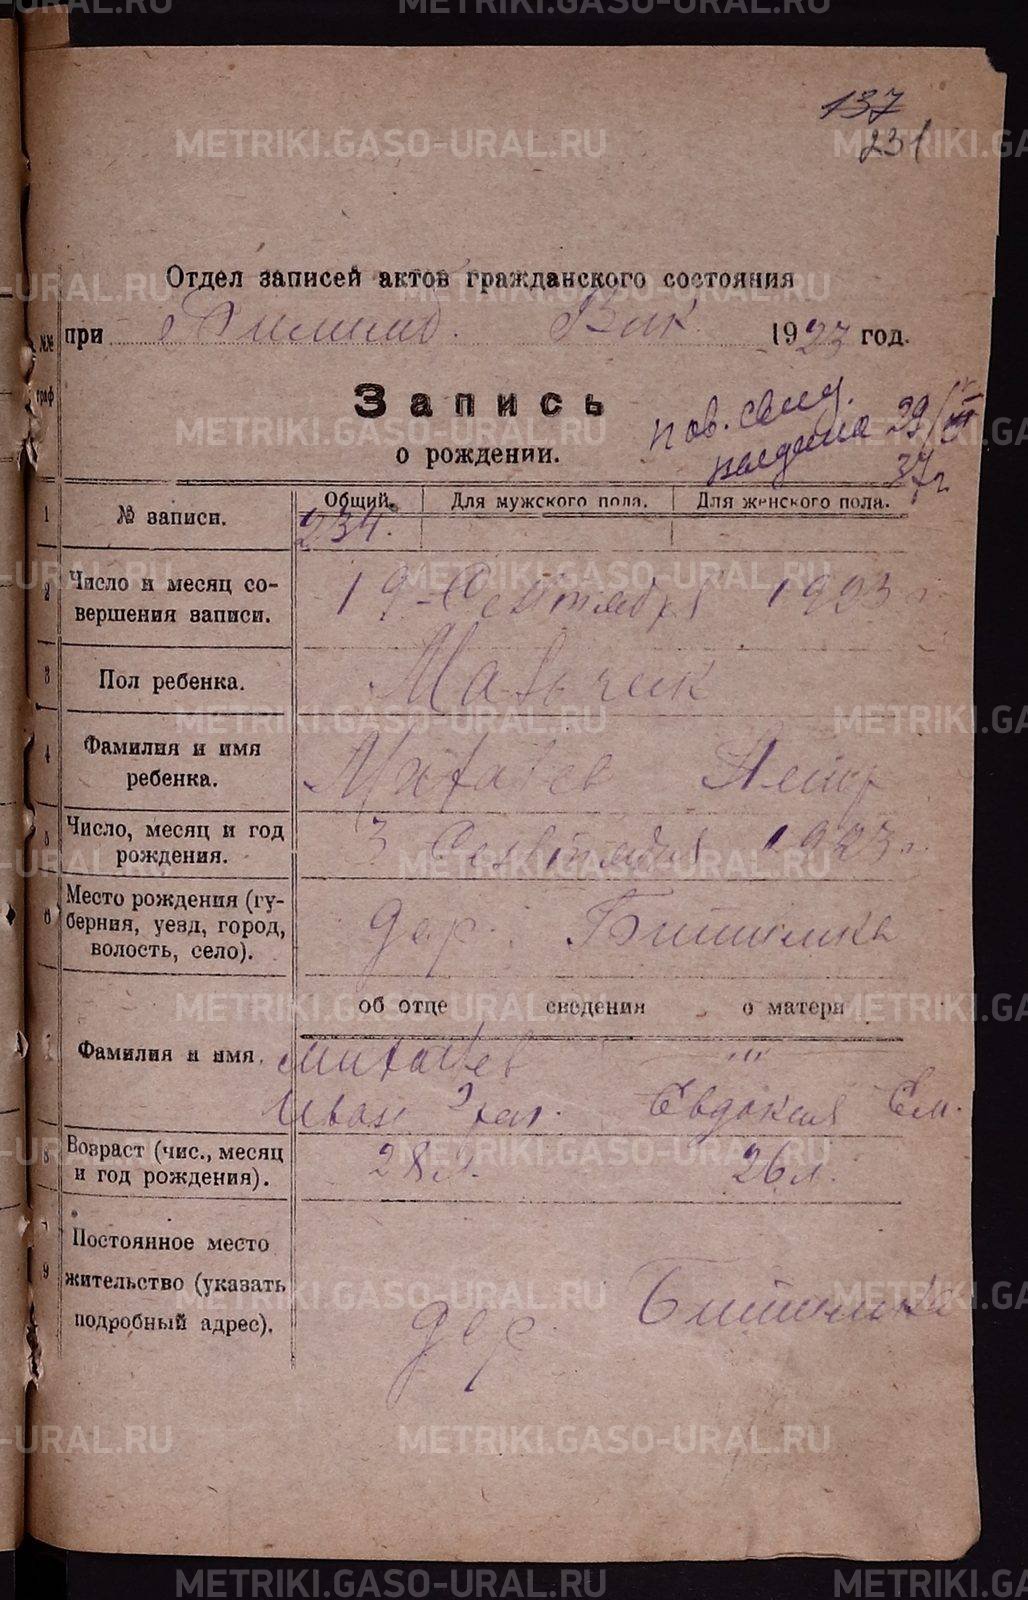 137
231
Отдел записей актов гражданского состояния
при Вик 1923 год.
Запись
о рождении.
пов. свид.
выдано 29/
37 г
№№ граф
1 № записи. Общий. Для мужского пола. Для женского пола.
234.
2 Число и месяц совершения записи. 19 Сентября 1923 г
3 Пол ребенка. Мальчик
4 Фамилия и имя ребенка. Михалев Петр
5 Число, месяц и год рождения. 3 Сентября 1923 г.
6 Место рождения (губерния, уезд, город, волость, село). дер.
об отце сведения о матери
7 Фамилия и имя. Михалев " " "
Иван Евдокия Ем.
8 Возраст (чис., месяц и год рождения). 28 л. 26 л.
9 Постоянное место жительство (указать подробный адрес). дер.
METRIKI.GASO-URAL.RU